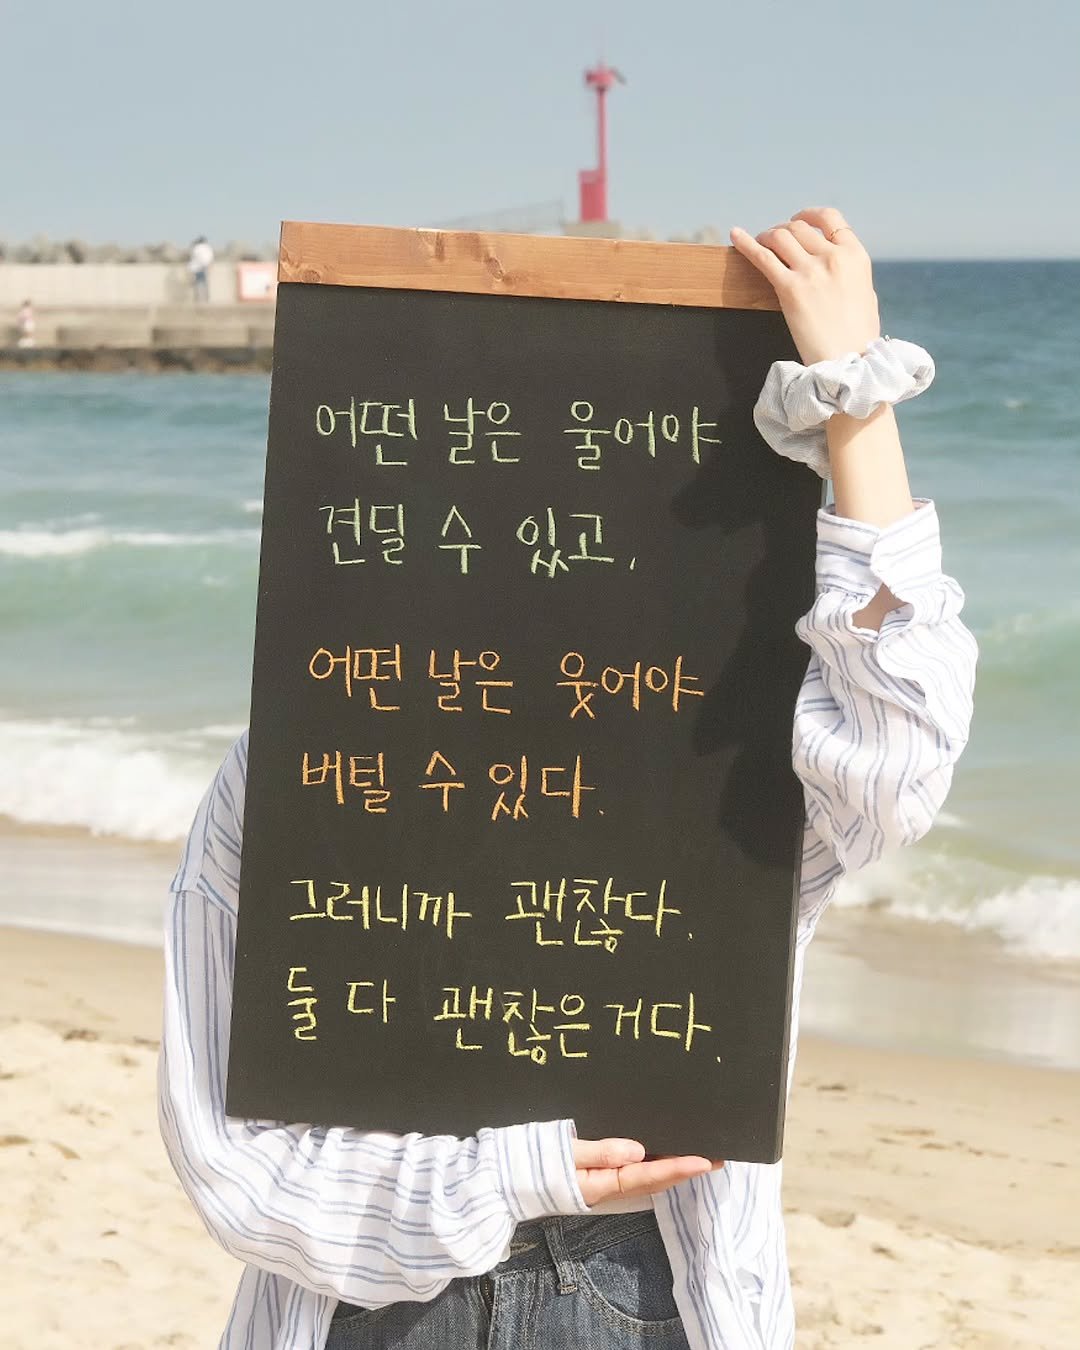 어떤 날은 울어야
견딜 수 있고,
어떤 날은 웃어야
버틸 수 있다.
그러니까 괜찮다.
둘 다 괜찮은거다.